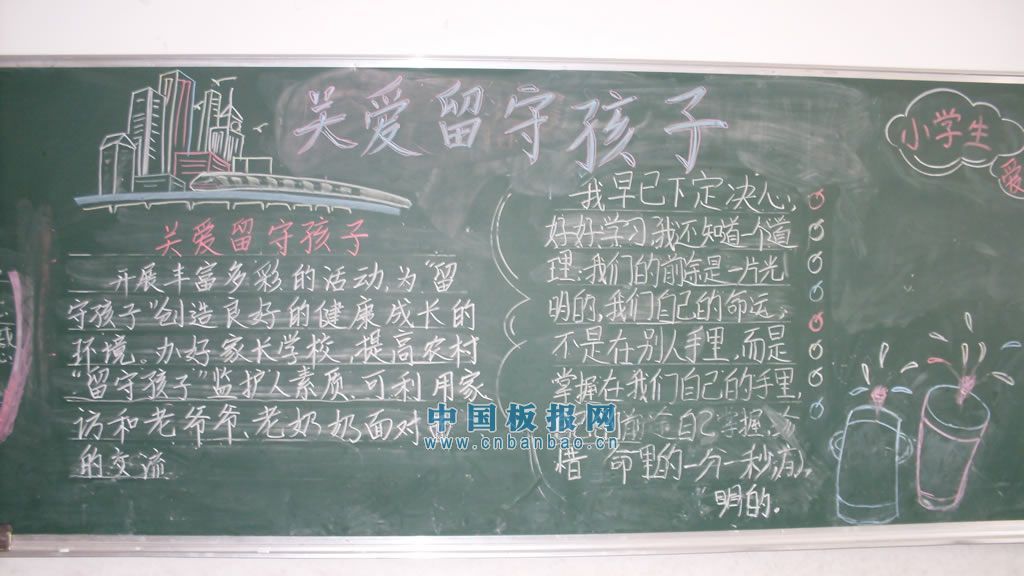 关爱留守孩子
小学生
爱
关爱留守孩子
开展丰富多彩的活动,为"留
守孩子"创造良好的健康成长的
环境。办好家长学校,提高农村
"留守孩子"监护人素质。可利用家
访和老爷爷、老奶奶面对
的交流
我早已下定决心,
好好学习,我还知道一个道
理:我们的前途是一片光
明的,我们自己的命运,
不是在别人手里,而是
掌握在我们自己的手里,
前途自己掌握,
惜 命里的一分一秒,
明的.
中国板报网
www.cnbanbao.cn